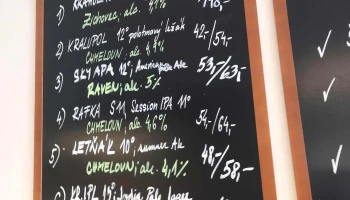 Zichovec, alc. 4,1%
2) KRALUPOL 12° polotmavý ležák 42,-/54,-
CHMELOUN, alc. 4,9%
3) SKLÁPA 12°, American Pale Ale 53,-/63,-
RAVEN, alc. 5%
4) RAFKA S11 Session IPA 11° 54,-/64,-
CHMELOUN, alc. 4,6%
5) LETŇÁK 10°, summer Ale 48,-/58,-
CHMELOUN, alc. 4,1%
India Pale Lager